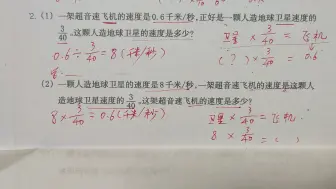 2.(1) 一架超音速飞机的速度是0.6千米/秒,正好是一颗人造地球卫星的速度的
3/40,这颗人造地球卫星的速度是多少?
卫星 × 3/40 = 飞机
0.6 ÷ 3/40 = 8(千米/秒)
( ? ) × 3/40 = 0.6
答:
(2) 一颗人造地球卫星的速度是8千米/秒,一架超音速飞机的速度是这颗人
造地球卫星速度的 3/40,这架超音速飞机的速度是多少?
8 × 3/40 = 0.6(千米/秒)
卫星 × 3/40 = 飞机
8 × 3/40 = ( )